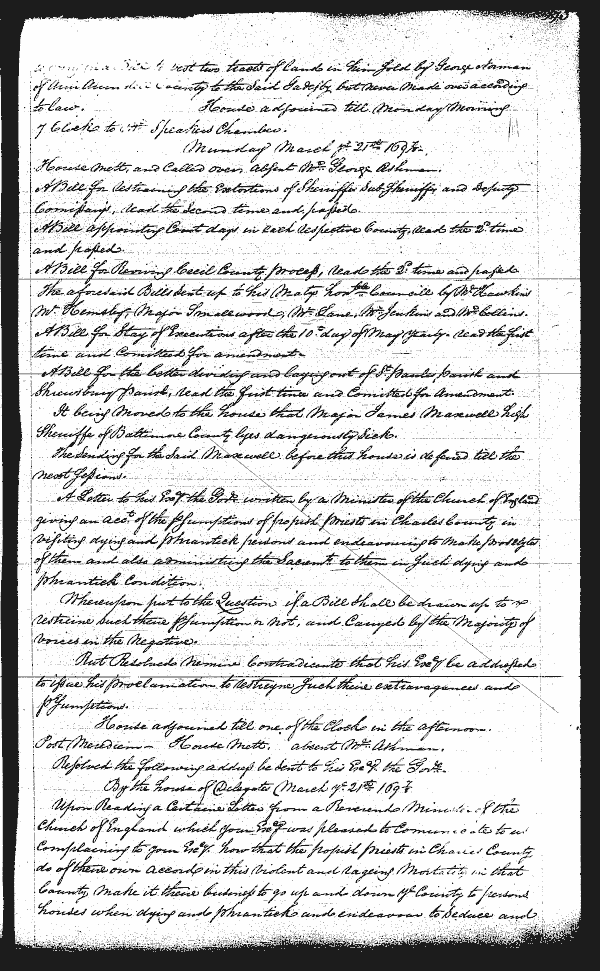 vest two tracts of land in him sold by George Norman
of Ann Arundel County to the Said Gadsby but never made over according
to law. House adjourned till Monday Morning
7 Clock to Speakers Chamber.
Munday March ye 21th 1697/
House Mett, and Called over. absent Mr. George Ashman.
A Bill for restraining the Extortions of Sheriffes SubSheriffes and Deputy
Comissarys, read the Second time and passed.
A Bill appointing Court days in each respective County, read the 2d time
and passed.
A Bill for Reviving Cecil County process, read the 2d time and passed
The aforesaid Bills sent up to his Matys honble Councill by Mr Hawkins
Mr. Hemsley Major Smallwood, Mr. Lane, Mr Jenkins and Mr Collins.
A Bill for Stay of Executions after the 10th day of May yearly. read the first
time and Comitted for amendment.
A Bill for the better dividing and laying out of St. Pauls Parish and
Shrewsbury Parish, read the first time and Comitted for Amendment.
It being Moved to the house that Major James Maxwell high
Sheriffe of Baltimore County lyes dangerously Sick.
The Sending for the Said Maxwell before this house is defered till the
next Sessions.
A Letter to his Excy the Govr. written by a Minister of the Church of England
giving an acct. of the psumptions of popish Priests in Charles County in
visiting dying and phrantick persons and endeavouring to make proselytes
of them and also administring the Sacrent. to them in Such dying and
phrantick Condition.
Whereupon put to the Question if a Bill shall be drawn up to
restreine such theire psumption or not, and Carryed by the Majority of
voices in the Negative.
But Resolved Nemine Contradicente that his Excy be addressed
to issue his proclamation to restreyne Such theire extravagances and
psumptions.
House adjourned till one of the Clock in the afternoon.
Post Meridiem House Mett. absent Mr. Ashman.
Resolved the following address be sent to his Excy the Govr.
By the house of Delegates March ye 21th 1697/
Upon Reading a Certaine Letter from a Reverend Minister of the
Church of England which your Excy was pleased to Comunicate to us
Complaining to your Excy. how that the popish Priests in Charles County
do of there own accord in this violent and rageing Mortality in that
County, make it theire business to go up and down ye County to persons
houses when dying and phrantick and endeavour to Seduce and